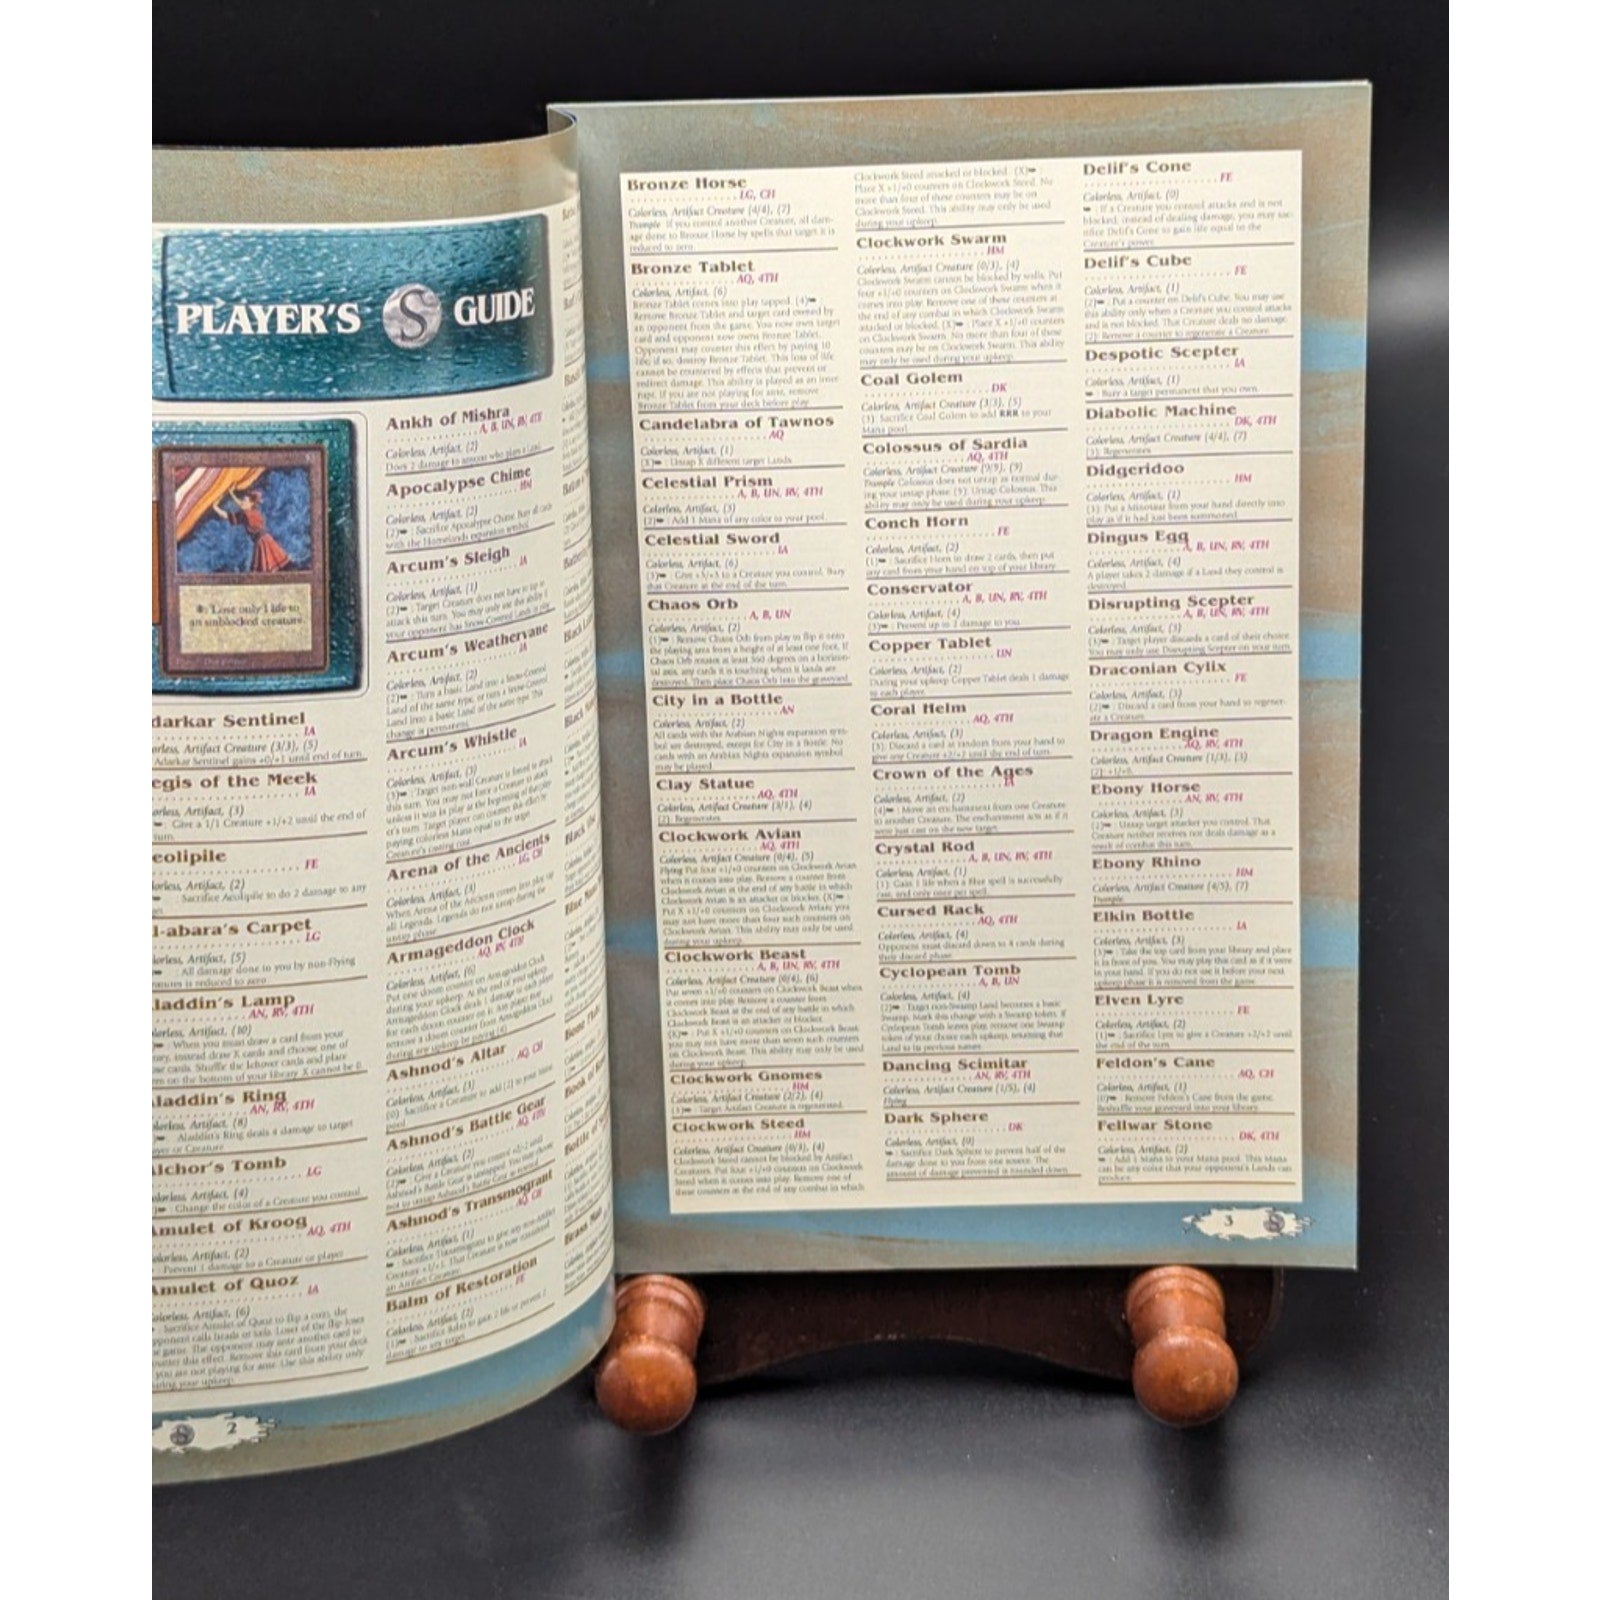 PLAYER'S S GUIDE
Lose only 1 life to
an unblocked creature.
darkar Sentinel
IA
orless, Artifact Creature (3/3), (5)
Adarkar Sentinel gains +0/+1 until end of turn.
egis of the Meek
IA
orless, Artifact, (3)
: Give a 1/1 Creature +1/+2 until the end of
turn.
eolipile
FE
orless, Artifact, (2)
: Sacrifice Aeolipile to do 2 damage to any
l-abara's Carpet
LG
lorless, Artifact, (5)
: All damage done to you by non-Flying
reatures is reduced to zero
laddin's Lamp
AN, RV, 4TH
lorless, Artifact, (10)
: When you must draw a card from your
instead draw X cards and choose one of
cards. Shuffle the leftover cards and place
on the bottom of your library. X cannot be 0.
laddin's Ring
AN, RV, 4TH
lorless, Artifact, (8)
: Aladdin's Ring deals 4 damage to target
ayer or Creature.
lchor's Tomb
LG
olorless, Artifact, (4)
: Change the color of a Creature you control.
Amulet of Kroog
AQ, 4TH
olorless, Artifact, (2)
: Prevent 1 damage to a Creature or player
Amulet of Quoz
IA
olorless, Artifact, (6)
: Sacrifice Amulet of Quoz to flip a coin, the
opponent calls heads or tails. Loser of the flip loses
game. The opponent may ante another card to
counter this effect. Remove this card from your deck
you are not playing for ante. Use this ability only
during your upkeep.
2
Ankh of Mishra
A, B, UN, RV, 4TH
Colorless, Artifact, (2)
Does 2 damage to anyone who plays a Land.
Apocalypse Chime
HM
Colorless, Artifact, (2)
(2) : Sacrifice Apocalypse Chime. Bury all cards
with the Homelands expansion symbol.
Arcum's Sleigh
IA
Colorless, Artifact, (1)
(2) : Target Creature does not have to tap to
attack this turn. You may only use this ability if
your opponent has Snow-Covered Lands in play.
Arcum's Weathervane
IA
Colorless, Artifact, (2)
(2) : Turn a basic Land into a Snow-Covered
Land of the same type, or turn a Snow-Covered
Land into a basic Land of the same type. This
change is permanent.
Arcum's Whistle
IA
Colorless, Artifact, (3)
(3) : Target non-wall Creature is forced to attack
this turn. You may not force a Creature to attack
unless it was in play at the beginning of the play
er's turn. Target player can counter this effect by
paying colorless Mana equal to the target
Creature's casting cost.
Arena of the Ancients
LG, CH
Colorless, Artifact, (3)
When Arena of the Ancients comes into play tap
all Legends. Legends do not untap during the
untap phase.
Armageddon Clock
AQ, RV, 4TH
Colorless, Artifact, (6)
Put one doom counter on Armageddon Clock
during your upkeep. At the end of your upkeep
Armageddon Clock deals 1 damage to each player
for each doom counter on it. Any player may
remove a doom counter from Armageddon Clock
during any upkeep by paying (4).
Ashnod's Altar
AQ, CH
Colorless, Artifact, (3)
(0): Sacrifice a Creature to add (2) to your Mana
pool
Ashnod's Battle Gear
AQ, 4TH
Colorless, Artifact, (2)
(2) : Give a Creature you control +2/-2 until
Ashnod's Battle Gear is untapped. You may choose
not to untap Ashnod's Battle Gear as normal.
Ashnod's Transmogrant
AQ, CH
Colorless, Artifact, (1)
: Sacrifice Transmogrant to give any non-Artifact
Creature +1/+1. That Creature is now considered
an Artifact Creature.
Balm of Restoration
FE
Colorless, Artifact, (2)
(1) : Sacrifice Balm to gain 2 life or prevent 2
damage to any target.
Bronze Horse
LG, CH
Colorless, Artifact Creature (4/4), (7)
Trample If you control another Creature, all dam-
age done to Bronze Horse by spells that target it is
reduced to zero.
Bronze Tablet
AQ, 4TH
Colorless, Artifact, (6)
Bronze Tablet comes into play tapped. (4) :
Remove Bronze Tablet and target card owned by
an opponent from the game. You now own target
card and opponent now owns Bronze Tablet.
Opponent may counter this effect by paying 10
life; if so, destroy Bronze Tablet. This loss of life
cannot be countered by effects that prevent or
redirect damage. This ability is played as an inter
rupt. If you are not playing for ante, remove
Bronze Tablet from your deck before play.
Candelabra of Tawnos
AQ
Colorless, Artifact, (1)
(X) : Untap X different target Lands.
Celestial Prism
A, B, UN, RV, 4TH
Colorless, Artifact, (3)
(2) : Add 1 Mana of any color to your pool.
Celestial Sword
IA
Colorless, Artifact, (6)
(3) : Give +3/+3 to a Creature you control. Bury
that Creature at the end of the turn.
Chaos Orb
A, B, UN
Colorless, Artifact, (2)
(1) : Remove Chaos Orb from play to flip it onto
the playing area from a height of at least one foot. If
Chaos Orb rotates at least 360 degrees on a horizon-
tal axis, any cards it is touching when it lands are
destroyed. Then place Chaos Orb into the graveyard.
City in a Bottle
AN
Colorless, Artifact, (2)
All cards with the Arabian Nights expansion sym-
bol are destroyed, except for City in a Bottle. No
cards with an Arabian Nights expansion symbol
may be played.
Clay Statue
AQ, 4TH
Colorless, Artifact Creature (3/1), (4)
(2): Regenerates.
Clockwork Avian
AQ, 4TH
Colorless, Artifact Creature (0/4), (5)
Flying Put four +1/+0 counters on Clockwork Avian
when it comes into play. Remove a counter from
Clockwork Avian at the end of any battle in which
Clockwork Avian is an attacker or blocker. (X) :
Put X +1/+0 counters on Clockwork Avian; you
may not have more than four such counters on
Clockwork Avian. This ability may only be used
during your upkeep.
Clockwork Beast
A, B, UN, RV, 4TH
Colorless, Artifact Creature (0/4), (6)
Put seven +1/+0 counters on Clockwork Beast when
it comes into play. Remove a counter from
Clockwork Beast at the end of any battle in which
Clockwork Beast is an attacker or blocker.
(X) : Put X +1/+0 counters on Clockwork Beast;
you may not have more than seven such counters
on Clockwork Beast. This ability may only be used
during your upkeep.
Clockwork Gnomes
HM
Colorless, Artifact Creature (2/2), (4)
(3) : Target Artifact Creature is regenerated.
Clockwork Steed
HM
Colorless, Artifact Creature (0/3), (4)
Clockwork Steed cannot be blocked by Artifact
Creatures. Put four +1/+0 counters on Clockwork
Steed when it comes into play. Remove one of
these counters at the end of any combat in which
Clockwork Steed attacked or blocked. (X) :
Place X +1/+0 counters on Clockwork Steed. No
more than four of these counters may be on
Clockwork Steed. This ability may only be used
during your upkeep.
Clockwork Swarm
HM
Colorless, Artifact Creature (0/3), (4)
Clockwork Swarm cannot be blocked by walls. Put
four +1/+0 counters on Clockwork Swarm when it
comes into play. Remove one of these counters at
the end of any combat in which Clockwork Swarm
attacked or blocked. (X) : Place X +1/+0 counters
on Clockwork Swarm. No more than four of these
counters may be on Clockwork Swarm. This ability
may only be used during your upkeep.
Coal Golem
DK
Colorless, Artifact Creature (3/3), (5)
(3): Sacrifice Coal Golem to add RRR to your
Mana pool.
Colossus of Sardia
AQ, 4TH
Colorless, Artifact Creature (9/9), (9)
Trample Colossus does not untap as normal dur-
ing your untap phase (9): Untap Colossus. This
ability may only be used during your upkeep.
Conch Horn
FE
Colorless, Artifact, (2)
(1) : Sacrifice Horn to draw 2 cards, then put
any card from your hand on top of your library.
Conservator
A, B, UN, RV, 4TH
Colorless, Artifact, (4)
(3) : Prevent up to 2 damage to you.
Copper Tablet
UN
Colorless, Artifact, (2)
During your upkeep Copper Tablet deals 1 damage
to each player.
Coral Helm
AQ, 4TH
Colorless, Artifact, (3)
(3): Discard a card at random from your hand to
give any Creature +2/+2 until the end of turn.
Crown of the Ages
IA
Colorless, Artifact, (2)
(4) : Move an enchantment from one Creature
to another Creature. The enchantment acts as if it
were just cast on the new target.
Crystal Rod
A, B, UN, RV, 4TH
Colorless, Artifact, (1)
(1): Gain 1 life when a Blue spell is successfully
cast, and only once per spell.
Cursed Rack
AQ, 4TH
Colorless, Artifact, (4)
Opponent must discard down to 4 cards during
their discard phase.
Cyclopean Tomb
A, B, UN
Colorless, Artifact, (4)
(2) : Target non-Swamp Land becomes a basic
Swamp. Mark this change with a Swamp token. If
Cyclopean Tomb leaves play, remove one Swamp
token of your choice each upkeep, returning that
Land to its previous nature.
Dancing Scimitar
AN, RV, 4TH
Colorless, Artifact Creature (1/5), (4)
Flying
Dark Sphere
DK
Colorless, Artifact, (0)
: Sacrifice Dark Sphere to prevent half of the
damage done to you from one source. The
amount of damage prevented is rounded down.
Delif's Cone
FE
Colorless, Artifact, (0)
: If a Creature you control attacks and is not
blocked, instead of dealing damage, you may sac-
rifice Delif's Cone to gain life equal to the
Creature's power.
Delif's Cube
FE
Colorless, Artifact, (1)
(2) : Put a counter on Delif's Cube. You may use
this ability only when a Creature you control attacks
and is not blocked. That Creature deals no damage.
(2): Remove a counter to regenerate a Creature.
Despotic Scepter
IA
Colorless, Artifact, (1)
: Bury a target permanent that you own.
Diabolic Machine
DK, 4TH
Colorless, Artifact Creature (4/4), (7)
(3): Regenerates.
Didgeridoo
HM
Colorless, Artifact, (1)
(3): Put a Minotaur from your hand directly into
play as if it had just been summoned.
Dingus Egg
A, B, UN, RV, 4TH
Colorless, Artifact, (4)
A player takes 2 damage if a Land they control is
destroyed.
Disrupting Scepter
A, B, UN, RV, 4TH
Colorless, Artifact, (3)
(3) : Target player discards a card of their choice.
You may only use Disrupting Scepter on your turn.
Draconian Cylix
FE
Colorless, Artifact, (3)
(2) : Discard a card from your hand to regener-
ate a Creature.
Dragon Engine
AQ, RV, 4TH
Colorless, Artifact Creature (1/3), (3)
(2): +1/+0.
Ebony Horse
AN, RV, 4TH
Colorless, Artifact, (3)
(2) : Untap target attacker you control. That
Creature neither receives nor deals damage as a
result of combat this turn.
Ebony Rhino
HM
Colorless, Artifact Creature (4/5), (7)
Trample
Elkin Bottle
IA
Colorless, Artifact, (3)
(3) : Take the top card from your library and place
it in front of you. You may play this card as if it were
in your hand. If you do not use it before your next
upkeep phase it is removed from the game.
Elven Lyre
FE
Colorless, Artifact, (2)
(1) : Sacrifice Lyre to give a Creature +2/+2 until
the end of the turn.
Feldon's Cane
AQ, CH
Colorless, Artifact, (1)
(0) : Remove Feldon's Cane from the game.
Reshuffle your graveyard into your library.
Fellwar Stone
DK, 4TH
Colorless, Artifact, (2)
: Add 1 Mana to your Mana pool. This Mana
can be any color that your opponent's Lands can
produce.
3